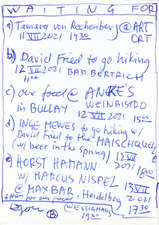 WAITING FOR
a) Tamara von Rechenberg @ ART
11 VII 2021 1430 ORT
b) David Fried to go hiking
12 VII 2021 BAD BERTRICH
11oo
c) our food @ ANDRÉ'S
in BULLAY WEINBISTRO
12 VII 2021 15oo
d) INGE MEWES to go hiking w/
David Fried to the MAISCHQUELL
w/ beer in the spring] 12 VII
2021 18oo
e) HORST HAMANN
w/ MARCUS NISPEL 13 VII
@ MAX BAR, Heidelberg 2021
1730